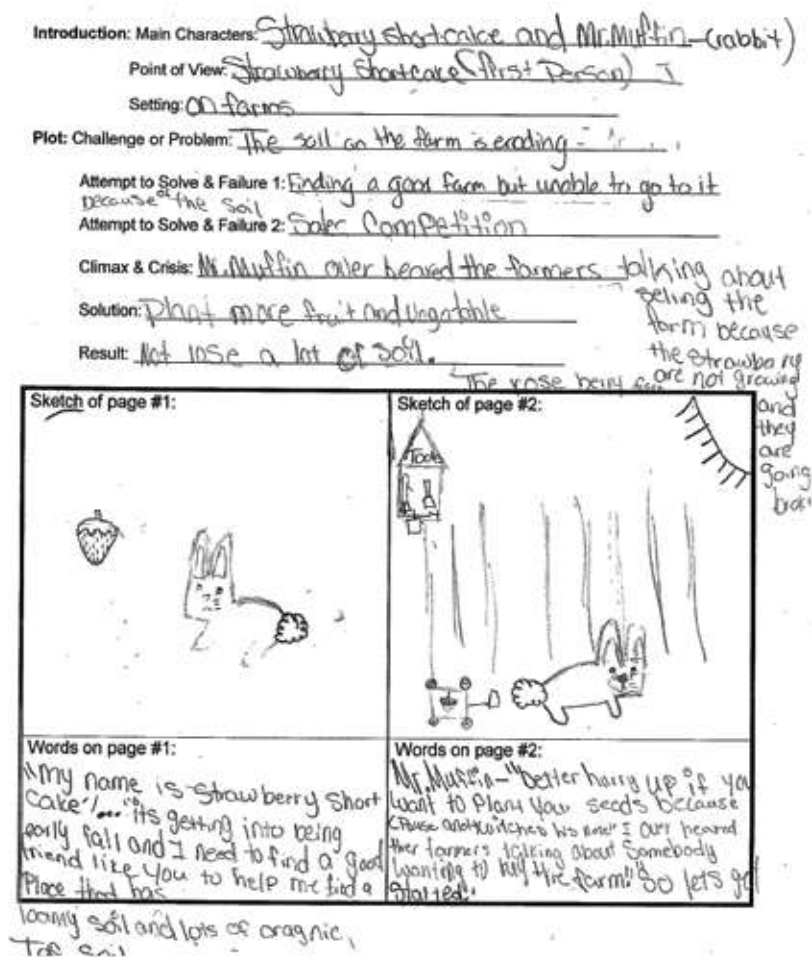 Introduction: Main Characters: Strawberry shortcake and Mr.Muffin-(rabbit)
Point of View: Strawberry Shortcake (first Person) I
Setting: on farms
Plot: Challenge or Problem: The soil on the farm is eroding -
Attempt to Solve & Failure 1: Finding a good farm but unable to go to it
because of the soil
Attempt to Solve & Failure 2: Sales Competition
Climax & Crisis: Mr.Muffin over heared the farmers talking about
selling the
farm because
the strawberry
are not growing
and
they
are
going
Solution: Plant more fruit and vegatable
Result: Not lose a lot of soil.
The rose berry
Sketch of page #1:
Sketch of page #2:
Tools
Words on page #1:
"My name is Strawberry Short
cake"/..."its getting into being
early fall and I need to find a good
friend like you to help me find a
Place that has
loamy soil and lots of oragnic,
Top Soil
Words on page #2:
Mr.Muffin-"better harry up if you
want to plant your seeds because
(Pause and twitches his nose" I over heared
ther farmers talking about Somebody
wanting to buy the farm!" So lets get
started".